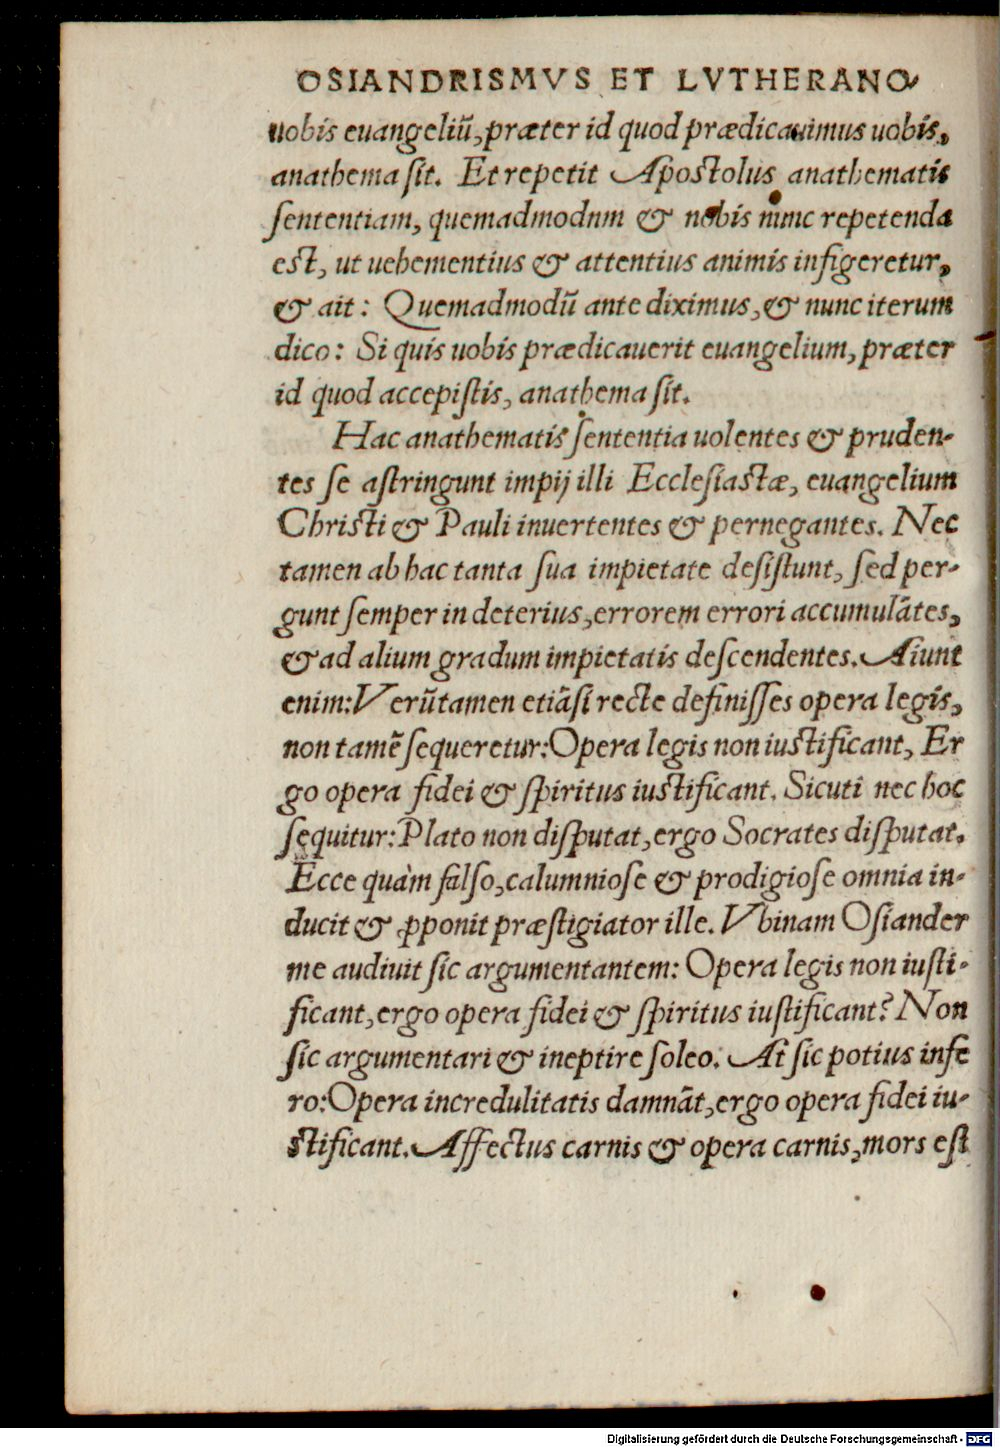 OSIANDRISMVS ET LVTHERANOꝝ
uobis euangeliũ, præter id quod prædicauimus uobis,
anathema sit. Et repetit Apostolus anathematis
sententiam, quemadmodnm & nobis nunc repetenda
est, ut uehementius & attentius animis infigeretur,
& ait: Quemadmodũ ante diximus, & nunc iterum
dico: Si quis uobis prædicauerit euangelium, præter
id quod accepistis, anathema sit.
Hac anathematis sententia uolentes & pruden-
tes se astringunt impij illi Ecclesiastæ, euangelium
Christi & Pauli inuertentes & pernegantes. Nec
tamen ab hac tanta sua impietate desistunt, sed per-
gunt semper in deterius, errorem errori accumulãtes,
& ad alium gradum impietatis descendentes. Aiunt
enim: Verũtamen etiãsi recte definisses opera legis,
non tamẽ sequeretur: Opera legis non iustificant, Er
go opera fidei & spiritus iustificant. Sicuti nec hoc
sequitur: Plato non disputat, ergo Socrates disputat.
Ecce quàm falso, calumniose & prodigiose omnia in-
ducit & ꝓponit præstigiator ille. Vbinam Osiander
me audiuit sic argumentantem: Opera legis non iusti-
ficant, ergo opera fidei & spiritus iustificant? Non
sic argumentari & ineptire soleo. At sic potius infe
ro: Opera incredulitatis damnãt, ergo opera fidei iu-
stificant. Affectus carnis & opera carnis, mors est
Digitalisierung gefördert durch die Deutsche Forschungsgemeinschaft - DFG